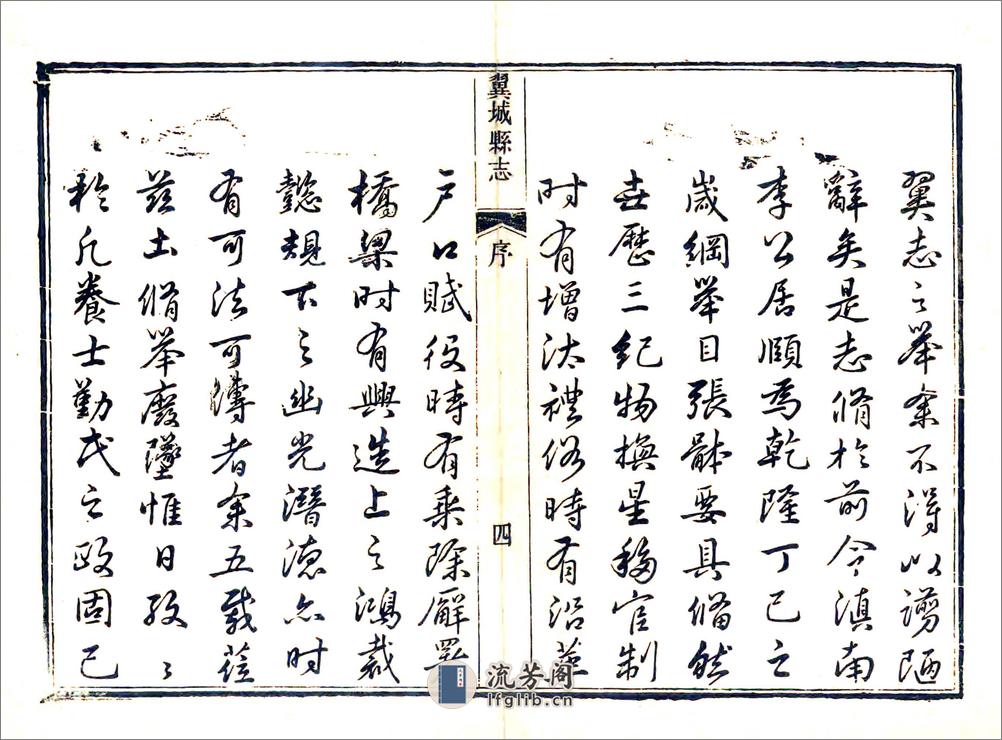 翼志之舉余不得以谫陋
辭矣是志脩於前令滇南
李公居頤為乾隆丁巳之
歲綱舉目張體要具備然
世歷三紀物換星移官制
时有增汰禮俗時有沿革
翼城縣志
序
四
戶口賦役時有乘除廨署
橋梁时有興造上之鴻裁
懿規下之幽光潛德亦时
有可法可傳者余五載蒞
茲土脩舉廢墜惟日孜〻
於凡養士勤民之政固已
流芳阁
lfglib.cn